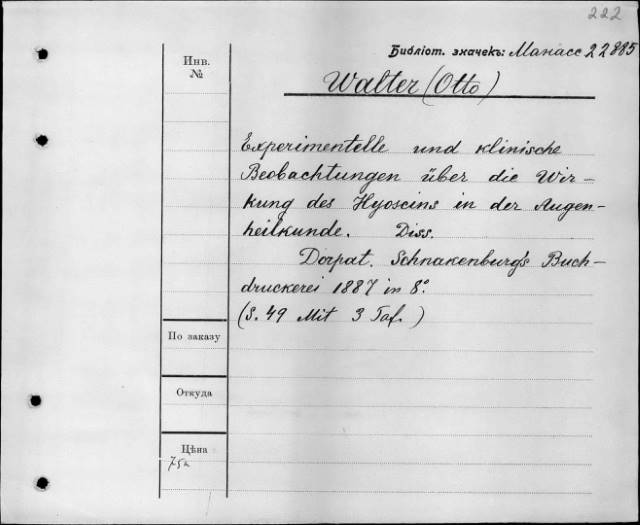 222
Библіот. значекъ: Манасс 22885
Инв.
№
Walter (Otto)
Experimentelle und klinische
Beobachtungen über die Wir-
kung des Hyoscins in der Augen-
heilkunde. Diss.
Dorpat. Schnakenburg's Buch-
druckerei 1887 in 8°.
(S. 49 Mit 3 Taf.)
По заказу
Откуда
Цѣна
75к